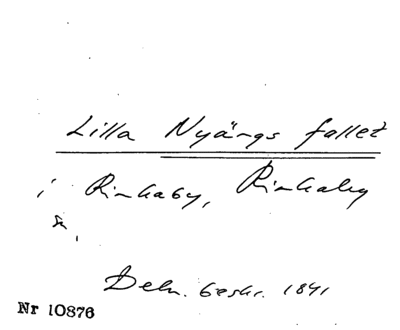 Lilla Nyängs fallet
i Rinkaby, Rinkaby
sn,
Dekn. beskr. 1841
Nr 10876